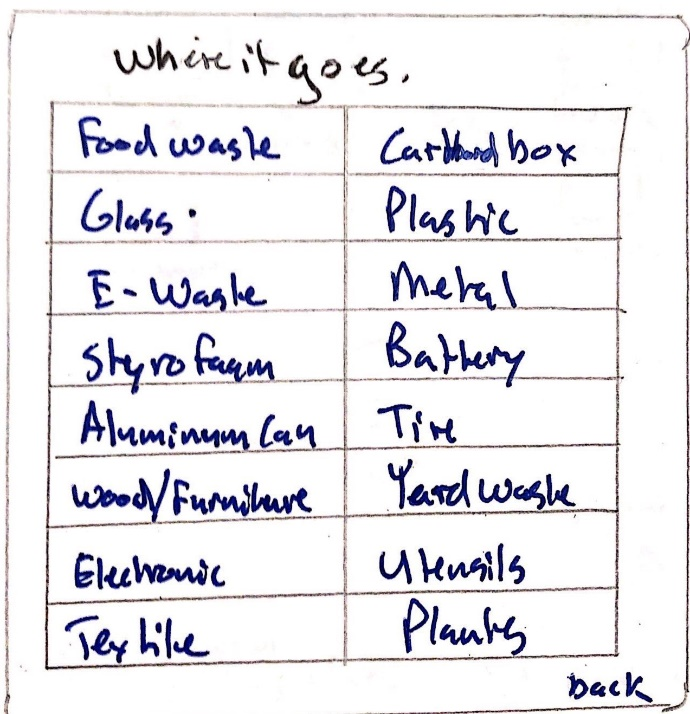 Where it goes.
Food waste Cardboard box
Glass. Plastic
E-Waste Metal
Styrofoam Battery
Aluminum Can Tire
Wood/Furniture Yard waste
Electronic Utensils
Textile Plants
back